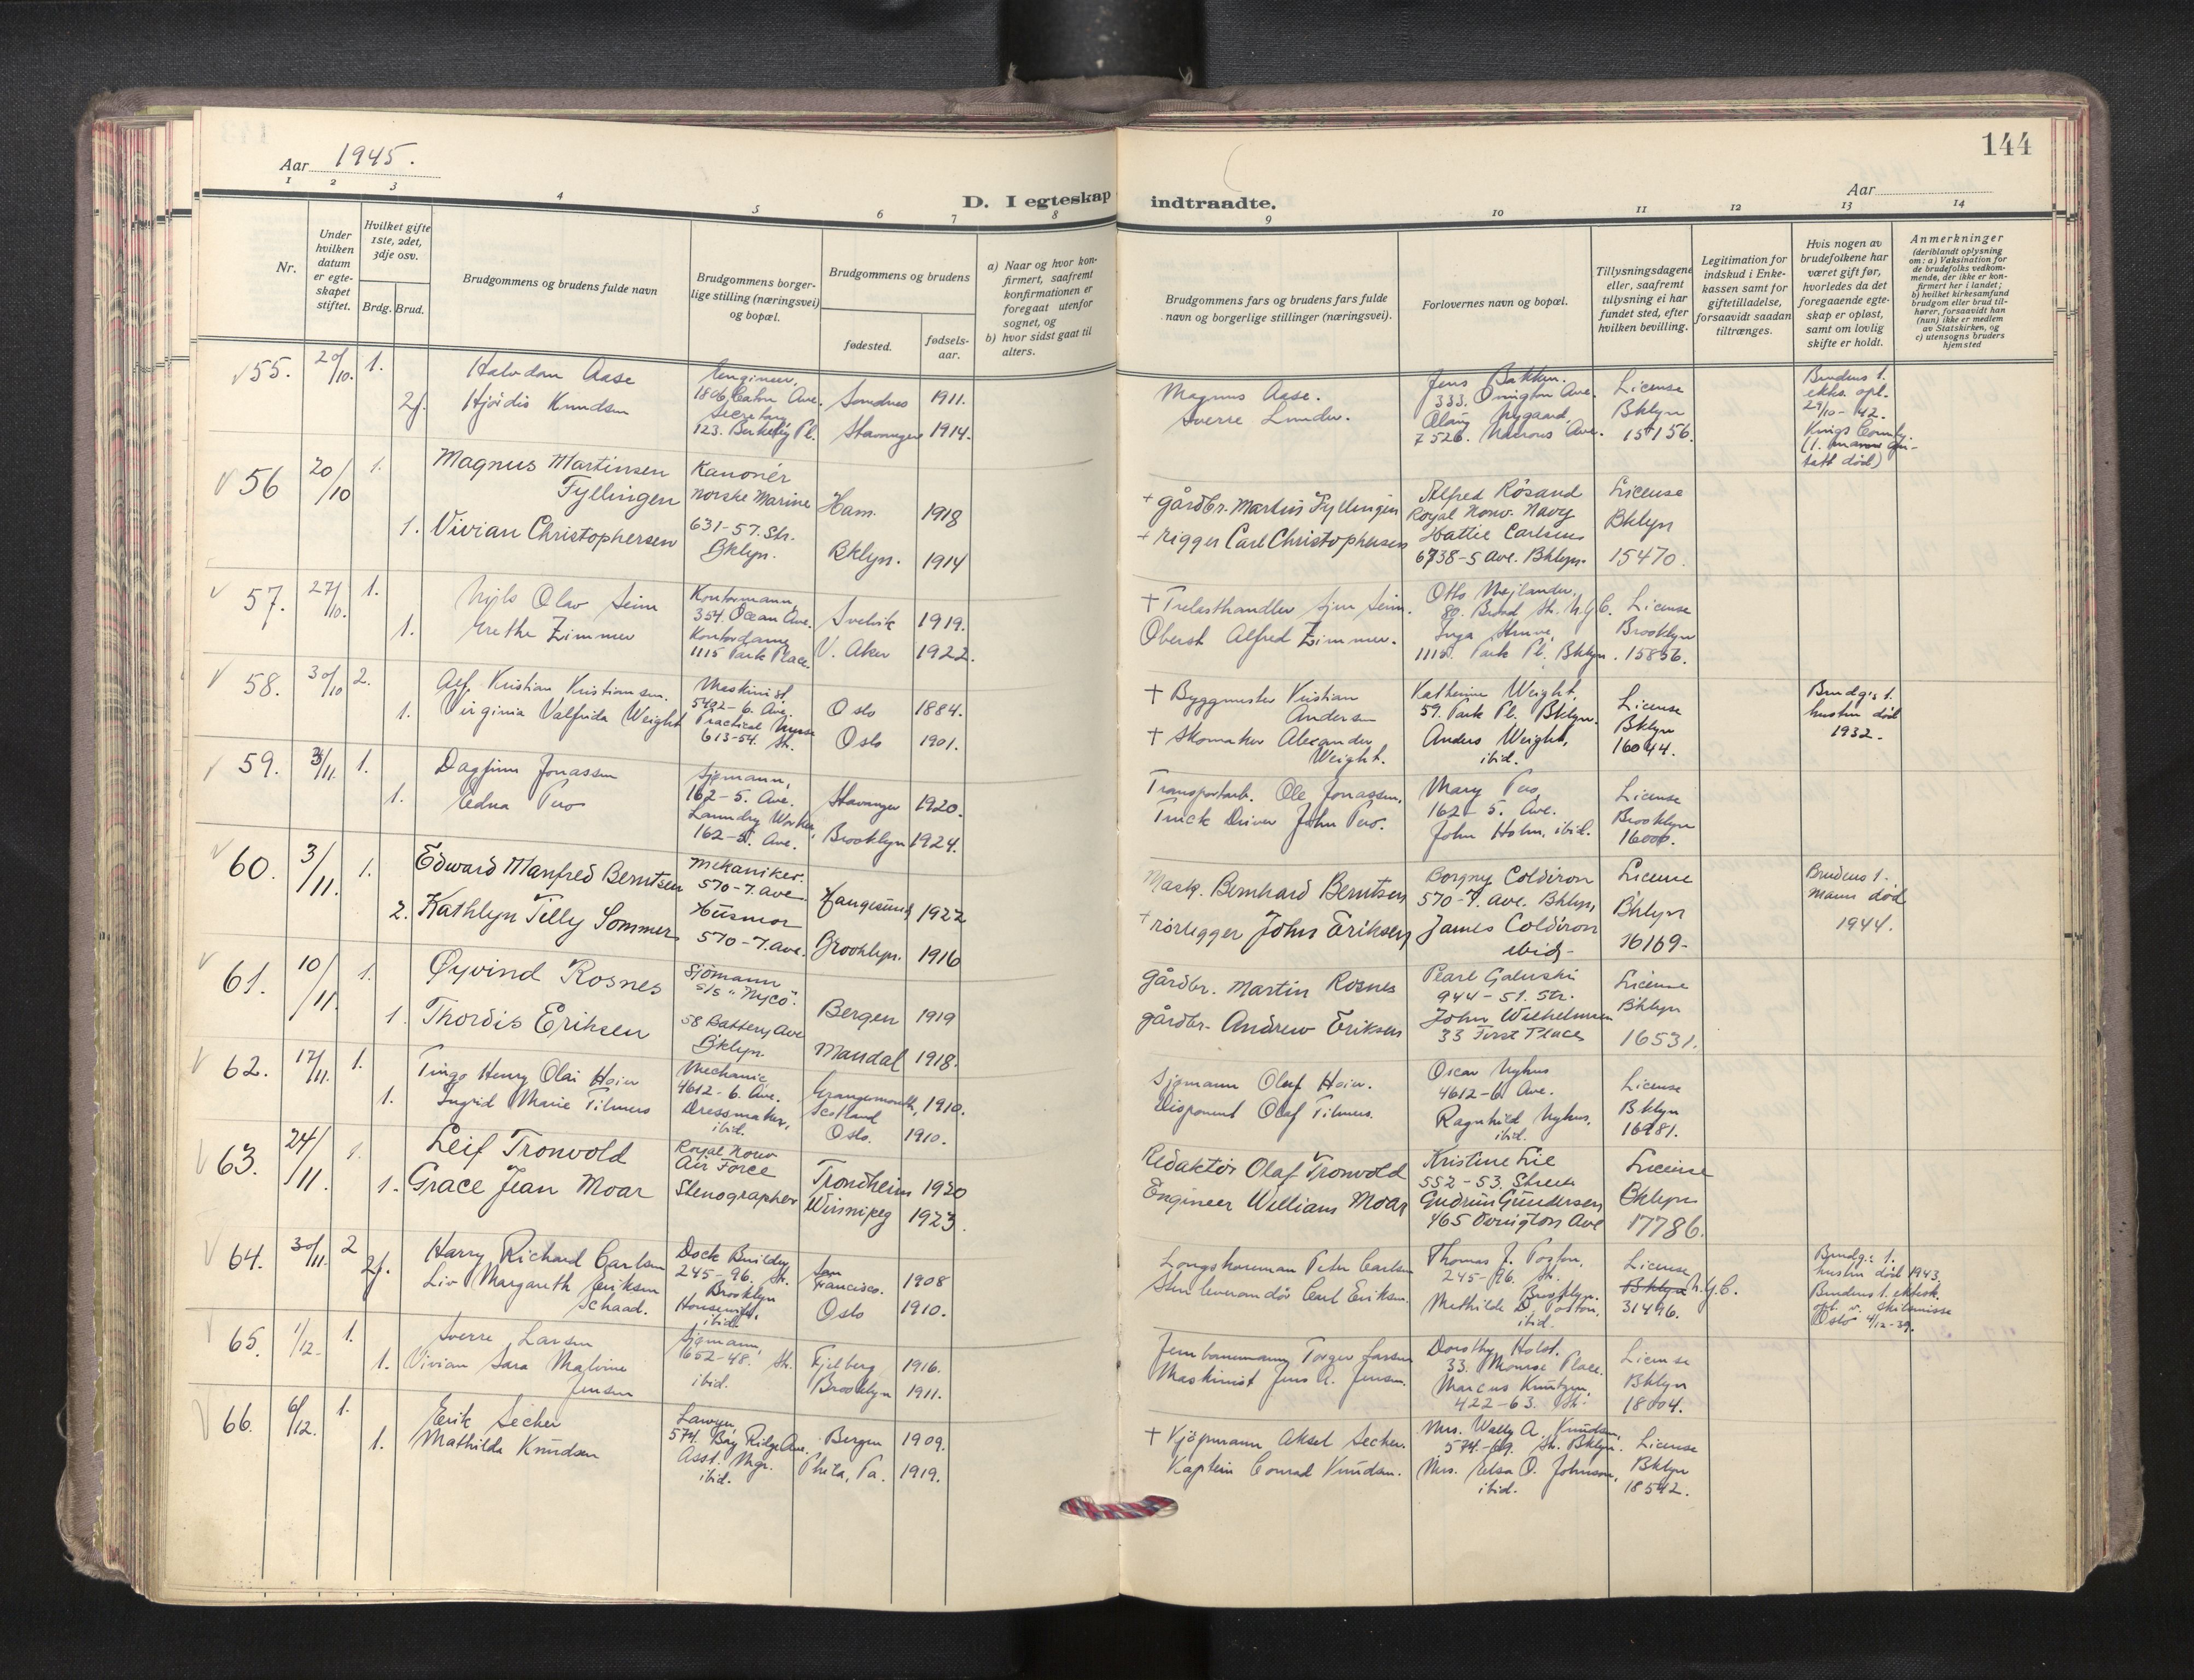 144
Aar 1945.
Aar
D. I egteskap indtraadte.
1 2 3 4 5 6 7 8 9 10 11 12 13 14
Nr.
Under hvilken datum er egte-skapet stiftet.
Hvilket gifte 1ste, 2det, 3dje osv.
Brdg. Brud.
Brudgommens og brudens fulde navn
Brudgommens borger-lige stilling (næringsvei) og bopæl.
Brudgommens og brudens
fødested.
fødsels-aar.
a) Naar og hvor kon-firmert, saafremt konfirmationen er foregaat utenfor sognet, og
b) hvor sidst gaat til alters.
Brudgommens fars og brudens fars fulde navn og borgerlige stillinger (næringsvei).
Forlovernes navn og bopæl.
Tillysningsdagene eller, saafremt tillysning ei har fundet sted, efter hvilken bevilling.
Legitimation for indskud i Enke-kassen samt for giftetilladelse, forsaavidt saadan tiltrænges.
Hvis nogen av brudefolkene har været gift før, hvorledes da det foregaaende egte-skap er opløst, samt om lovlig skifte er holdt.
Anmerkninger (deriblandt oplysning om: a) Vaksination for de brudefolks vedkom-mende, der ikke er kon-firmert her i landet; b) hvilket kirkesamfund brudgom eller brud til-hører, forsaavidt han (hun) ikke er medlem av Statskirken, og c) utensogns bruders hjemsted
55. 20/10. 1. Halvdan Aase Engineer, 1806 Caton Ave. Sandnes 1911. Magnus Aase. Jens Bakken. 333. Ovington Ave. License
2f. Hjördis Knudsen Secretary 123. Berkeley Pl. Stavanger 1914. Sverre Lunder. Olaug Nygaard, 7526. Narrows Ave. Bklyn 15156.
Brudens 1. ekts. opl. 29/10-42. Kings County.
56 20/10 1. Magnus Martinsen Fyllingen Kanonér norske Marine Ham. 1918 + gårdbr. Martin Fyllingen Alfred Rösand Royal Norw. Navy License
1. Vivian Christophersen 631-57. Str. Bklyn. Bklyn. 1914 + rigger Carl Christophersen Hattie Carlsen 6738-5 Ave. Bklyn. Bklyn 15470.
57. 27/10. 1. Nils Olav Seim Kontormann, 354. Ocean Ave. Svelvik 1919. + Trelasthandler Sjur Seim. Otto Mejlander, 80. Broad Str. N.Y.C. License
1. Grethe Zimmer Kontordame, 1115 Park Place. V. Aker 1922. Oberst Alfred Zimmer. Inga Struve, 1115. Park Pl. Bklyn. Brooklyn 15856.
58. 30/10 2. Alf Kristian Kristiansen. Maskinist, 5402-6. Ave. Oslo 1884. + Byggmester Kristian Andersen Katherine Weight, 59. Park Pl. Bklyn. License
1. Virginia Valfrida Weight Practical Nurse 613-54. Str. Oslo 1901. + Skomaker Alexander Weight. Anders Weight, ibid. Bklyn 16044.
Brudg.s 1. hustru död 1932.
59. 3/11. 1. Dagfinn Jonassen Sjømann, 162-5. Ave. Stavanger 1920. Transportarb. Ole Jonassen. Mary Pero, 162-5. Ave. License
1. Edna Pero Laundry Worker, 162-5. Ave. Brooklyn 1924. Truck Driver John Pero. John Holm, ibid. Brooklyn
60. 3/11. 1. Edward Manfred Berntsen mekaniker. 570-7. ave. Haugesund 1922 Mask. Bernhard Berntsen Borgny Coldiron 570-7. ave. Bklyn, License
2. Kathlyn Tilly Sommer Husmor 570-7. ave. Brooklyn. 1916 + rörlegger John Eriksen James Coldiron ibid- Bklyn 16169-
Brudens 1. mann död 1944.
61. 10/11. 1. Øyvind Rosnes sjömann s/s "Nyco". Bergen 1919 gårdbr. Martin Rosnes Pearl Galuski 944-51. Str. License
1. Thordis Eriksen 58 Battery Ave Bklyn. Mandal 1918. gårdbr. Andrew Eriksen John Wilhelmsen 33 First Place Bklyn 16531.
62. 17/11. 1. Tingo Henry Olai Hoier Mechanic 4612-6. Ave. Grangemouth, Scotland 1910. Sjømann Olaf Hoier. Oscar Nyhus 4612-6. Ave. License
1. Ingrid Marie Tilmers Dressmaker, ibid. Oslo. 1910. Disponent Olaf Tilmers. Ragnhild Nyhus. ibid. Bklyn 16981.
63. 24/11. 1. Leif Tronvold Royal Norw Air Force Trondheim 1920 Redaktör Olaf Tronvold Kristine Lie 552-53. Street License
1. Grace Jean Moar Stenographer Winnipeg 1923. Engineer William Moar Gudrun Gundersen 465 Ovington Ave Bklyn 17786.
64. 30/11. 2 Harry Richard Carlsen Dock Builder 245-96. Str. Brooklyn San Francisco. 1908 Longshoreman Peter Carlsen Thomas J. 245-96. Str. Brooklyn. License
2f. Liv Margareth Eriksen Schaad. Housewife, ibid. Oslo 1910. Skinleverandör Carl Eriksen. Mathilde D. ibid. Bklyn N.Y.C. 31496.
Brudg.: 1. hustru död 1943. Brudens 1. ektesk. opl. v. skilsmisse Oslo 4/12-39.
65. 1/12. 1. Sverre Larsen Sjømann, 652-48. Str. Fjelberg 1916. Jernbanemann Torger Larsen Dorothy Holst. 33. Monroe Place. License
1. Vivian Sara Malvine Jensen ibid. Brooklyn 1911. Maskinist Jens A. Jensen. Marcus Knutzen, 422-63. Str. Bklyn 18004.
66. 6/12. 1. Erik Secher Lawyer, 574. Bay Ridge Ave. Bergen 1909. + Kjøpmann Aksel Secher. Mrs. Wally A. Knudsen, 574.-69. Str. Bklyn. License
1. Mathilde Knudsen Asst. Mgr. ibid. Phila, Pa. 1919. Kaptein Conrad Knudsen. Mrs. Elsa O. Johnson, ibid. Bklyn 18542.